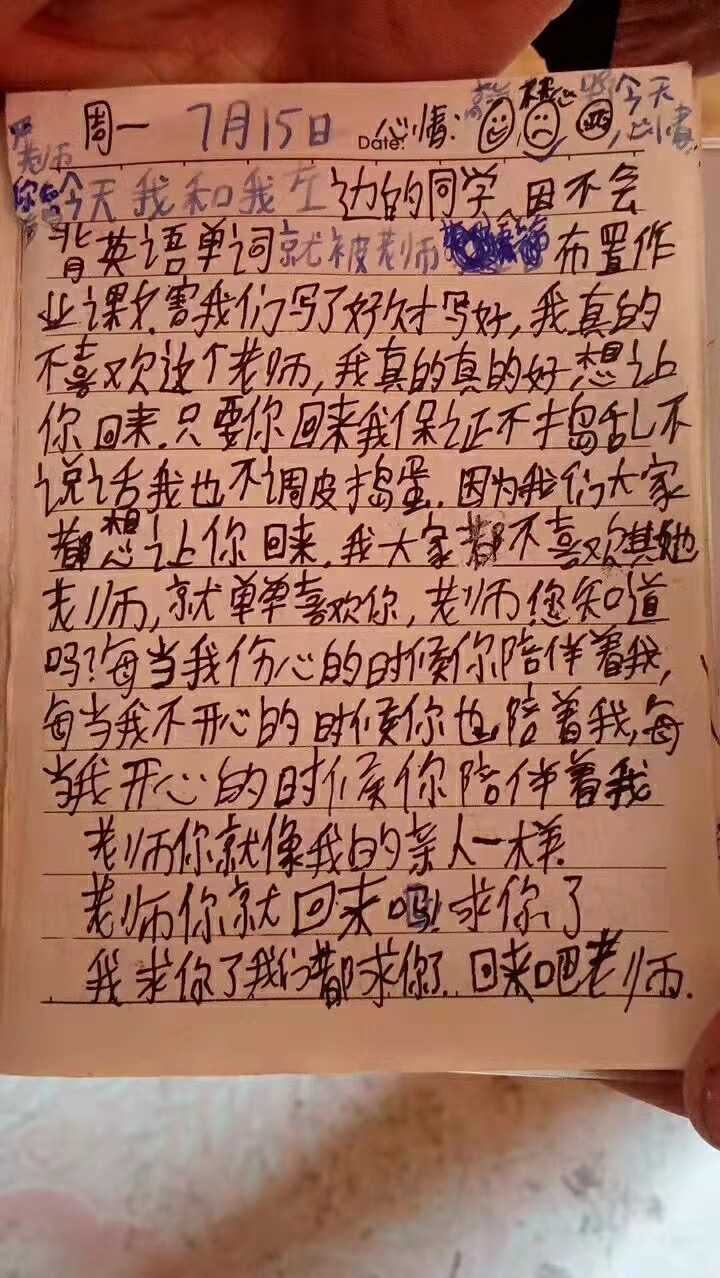 周一 7月15日 Date: 心情: 今天
老师 心情
你 今天我和我左边的同学,因不会
背英语单词就被老师布置作
业课文.害我们写了好久才写好,我真的
不喜欢这个老师,我真的真的好想让
你回来.只要你回来我保证不捣乱不
说话我也不调皮捣蛋.因为我们大家
都想让你回来.我大家都不喜欢其她
老师,就单单喜欢你,老师您知道
吗?每当我伤心的时候你陪伴着我,
每当我不开心的时候你也陪着我,每
当我开心的时候你陪伴着我
老师你就像我的亲人一样.
老师你就回来吗!求你了
我求你了我们都求你了.回来吧老师.